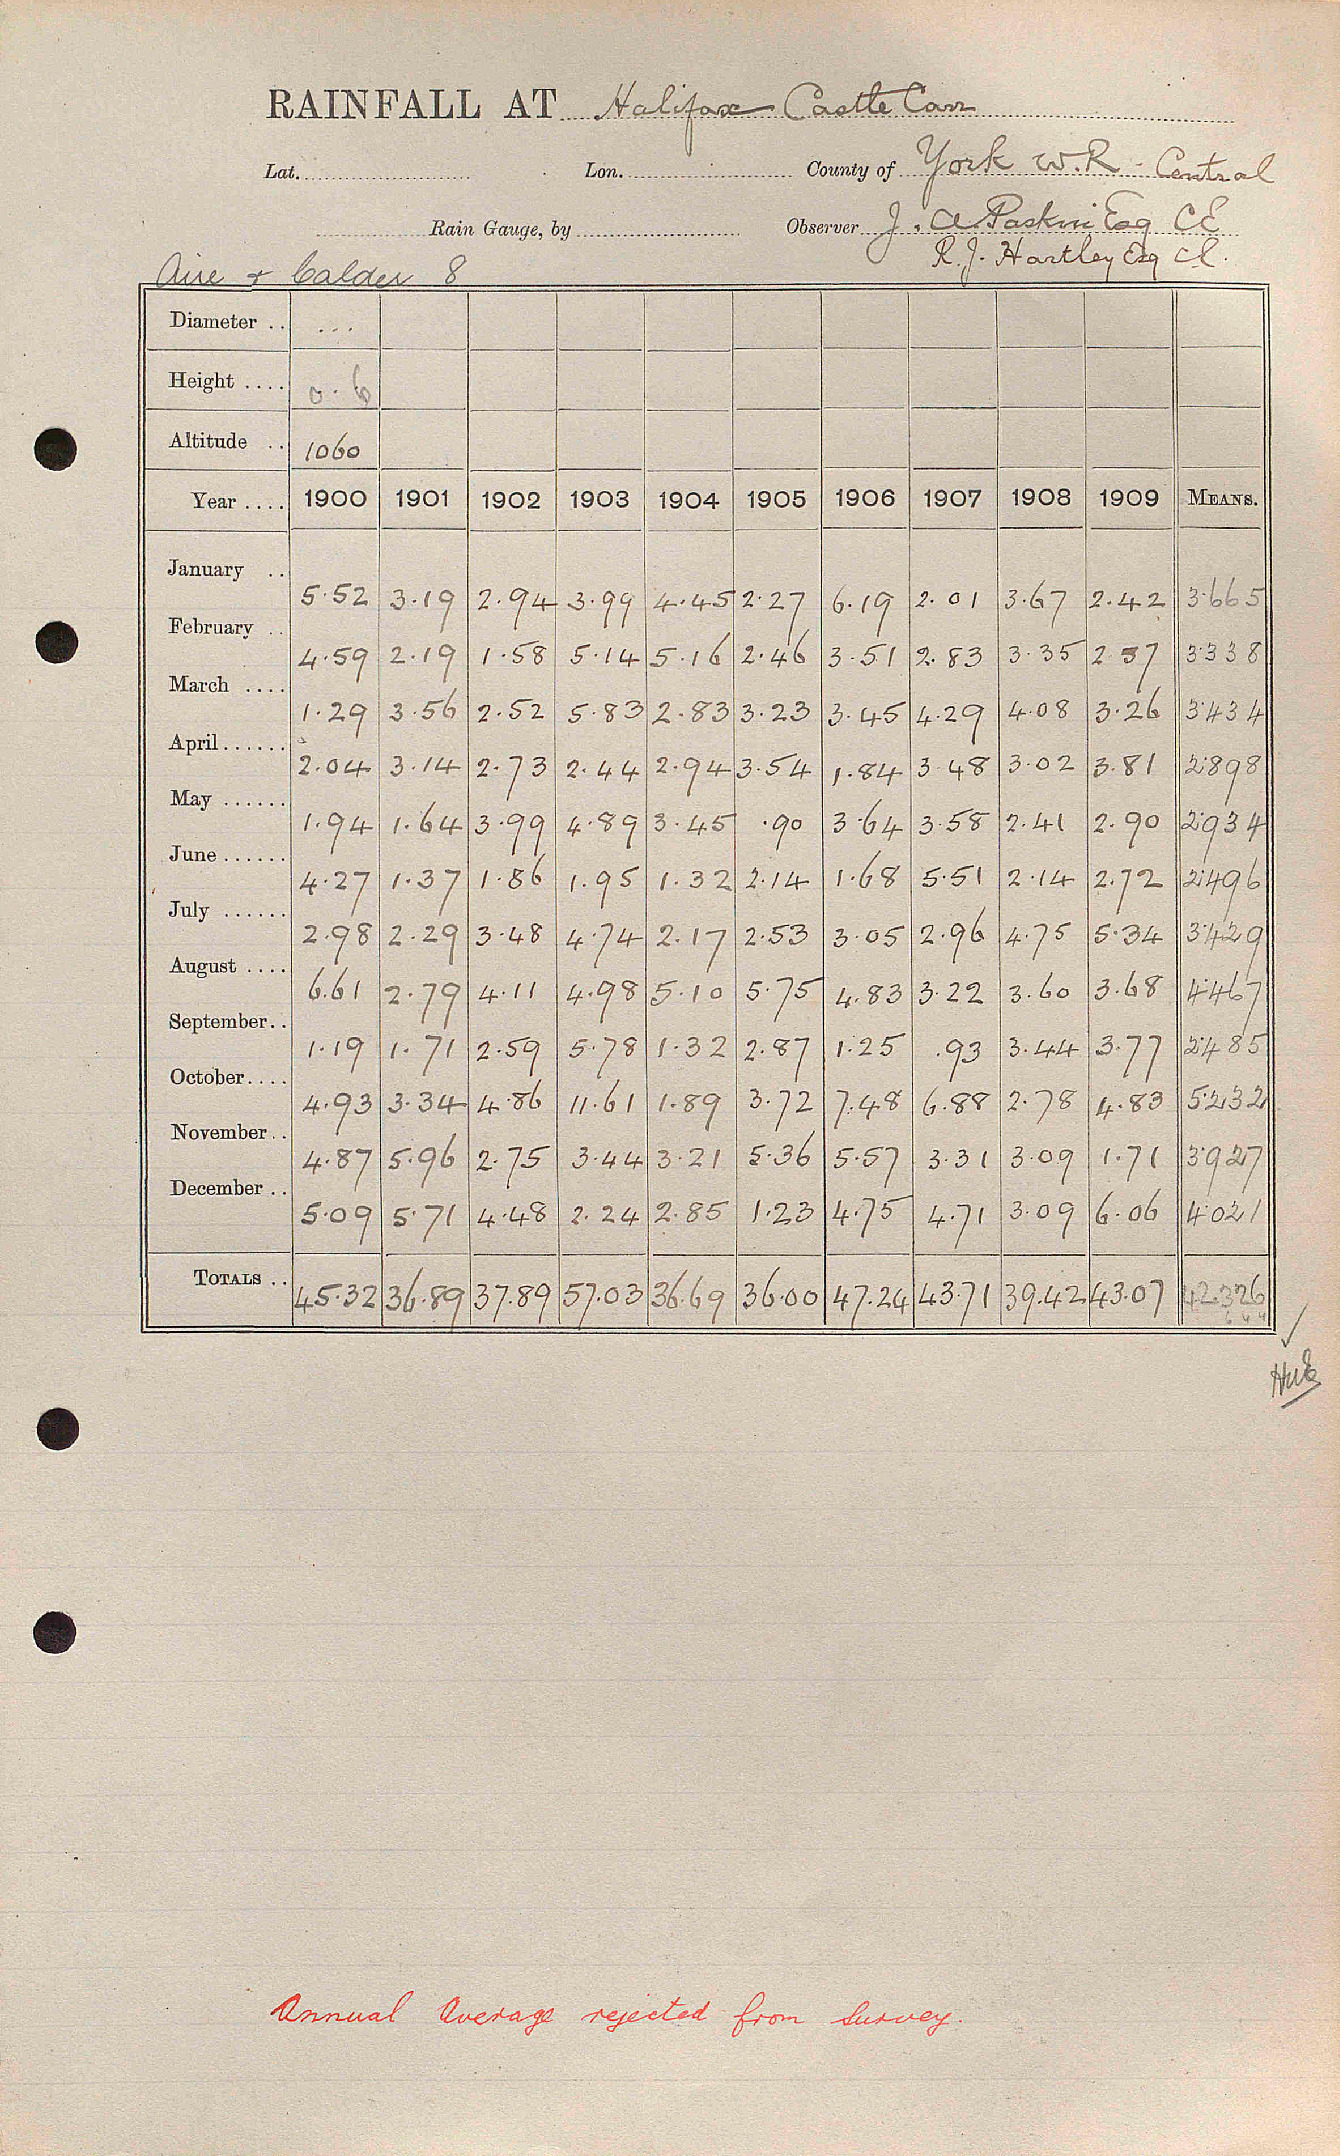 RAINFALL AT Halifax Castle Carr
Lat. Lon. County of York W.R - Central
Rain Gauge, by Observer J. A. Paskin Esq CE
R. J. Hartley Esq CE.
Aire & Calder 8
Diameter .. ...
Height .... 0.6
Altitude .. 1060
Year .... 1900 1901 1902 1903 1904 1905 1906 1907 1908 1909 MEANS.
January .. 5.52 3.19 2.94 3.99 4.45 2.27 6.19 2.01 3.67 2.42 3.665
February .. 4.59 2.19 1.58 5.14 5.16 2.46 3.51 2.83 3.35 2.57 3.338
March .... 1.29 3.56 2.52 5.83 2.83 3.23 3.45 4.29 4.08 3.26 3.434
April...... 2.04 3.14 2.73 2.44 2.94 3.54 1.84 3.48 3.02 3.81 2.898
May ...... 1.94 1.64 3.99 4.89 3.45 .90 3.64 3.58 2.41 2.90 2.934
June...... 4.27 1.37 1.86 1.95 1.32 2.14 1.68 5.51 2.14 2.72 2.496
July ...... 2.98 2.29 3.48 4.74 2.17 2.53 3.05 2.96 4.75 5.34 3.429
August .... 6.61 2.79 4.11 4.98 5.10 5.75 4.83 3.22 3.60 3.68 4.467
September.. 1.19 1.71 2.59 5.78 1.32 2.87 1.25 .93 3.44 3.77 2.485
October.... 4.93 3.34 4.86 11.61 1.89 3.72 7.48 6.88 2.78 4.83 5.232
November.. 4.87 5.96 2.75 3.44 3.21 5.36 5.57 3.31 3.09 1.71 3.927
December .. 5.09 5.71 4.48 2.24 2.85 1.23 4.75 4.71 3.09 6.06 4.021
TOTALS .. 45.32 36.89 37.89 57.03 36.69 36.00 47.24 43.71 39.42 43.07 42.326
Annual Average rejected from Survey.